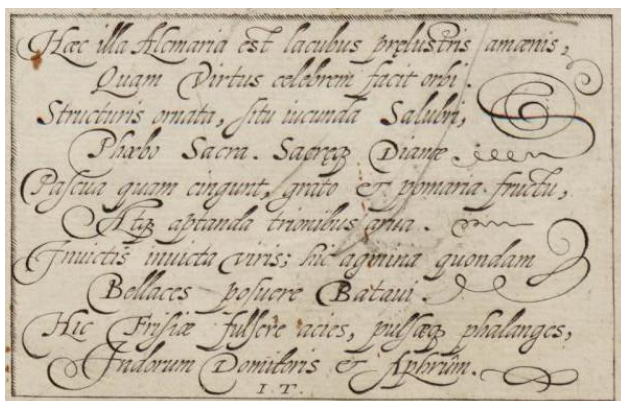 Hæc illa Alcmaria est lacubus pręlustris amænis,
Quam Virtus celebrem facit orbi.
Structuris ornata, situ iucunda Salubri,
Phæbo Sacra. Sacręq Dianæ
Pascua quam cingunt, grato & pomaria fructu,
Atq aptanda trionibus arua.
Invictis invicta viris; hic agmina quondam
Bellaces posuere Bataui.
Hic Frisiæ fulsere acies, pulsæq phalanges,
Indorum Domitoris & Aphrûm.
I. T.